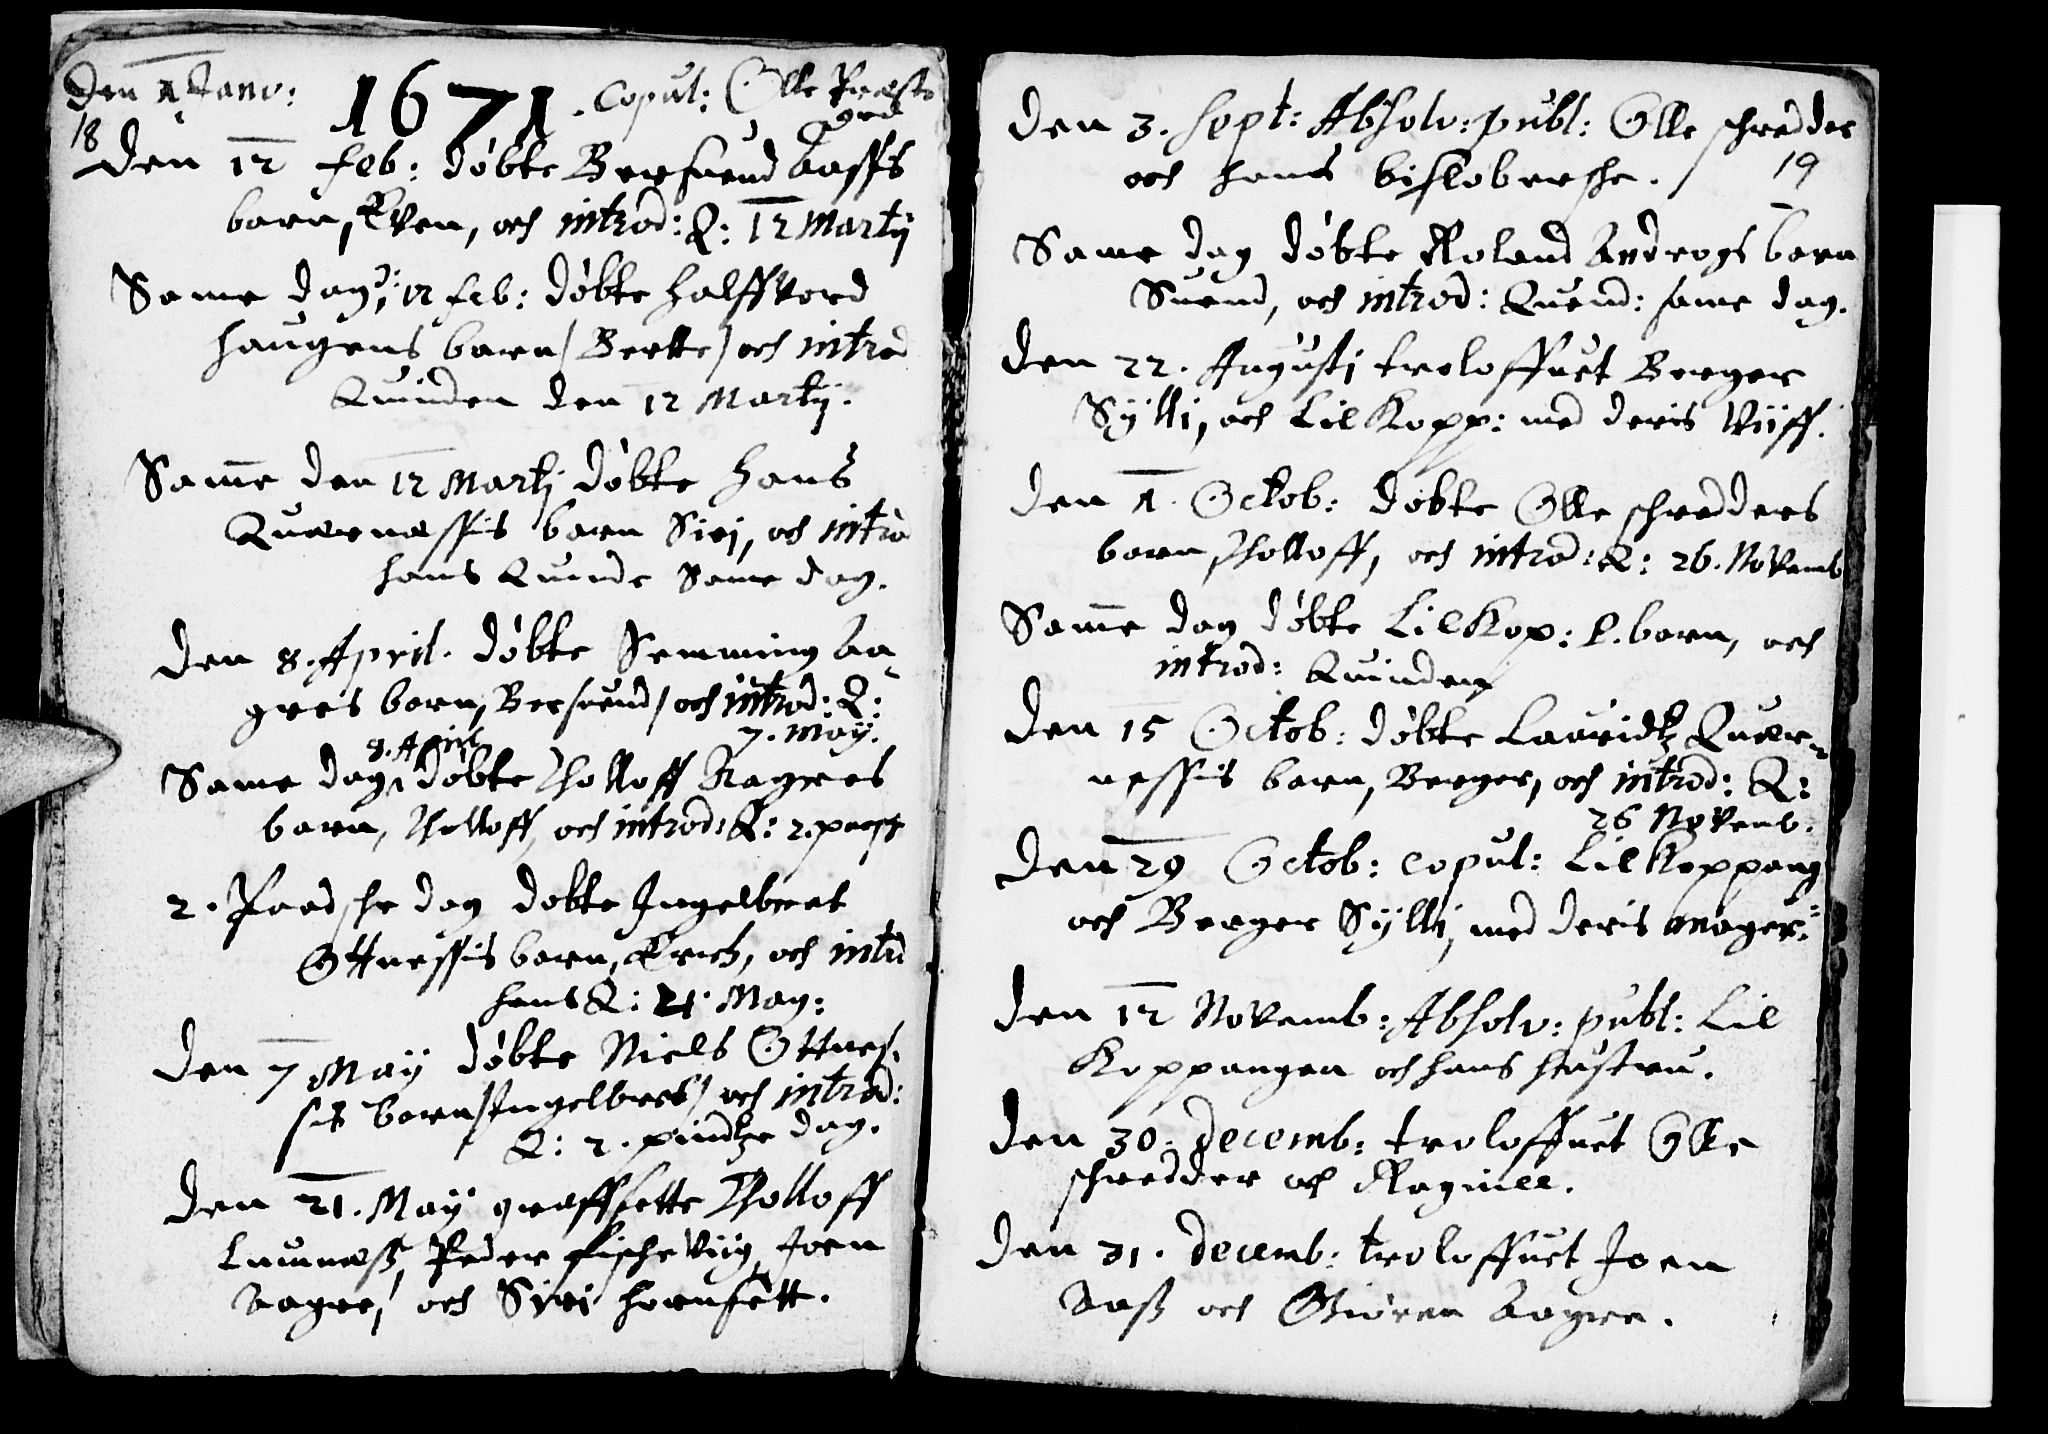 Den 1 Janv: 1671. Copul: Olle Præste
gra
18
Den 12 feb: døbte Bersuend Aasses
barn, Even, och introd: Q: 12 Martij
Same dag, 12 feb: døbte Halffvord
Haugens barn, Berette, och introd
Quinden den 12 Martij.
Same den 12 Martj døbte Hans
Quernæssis barn Siri, och introd
hans Quinde Same dag.
Den 8. April. døbte Semming Aa-
gres barn, Bersuend, och introd: Q:
7. May.
8. April
Same dag, døbte Tholloff Aagres
barn, Tholloff, och introd: Q: 2. paask
2. Paadsche dag døbte Ingelbret
Ottnessis barn, Erich, och introd
hans Q: 21. May:
Den 7 May døbte Niels Ottnes-
sis barn, Ingelbret, och introd:
Q: 2. pindtze dag.
Den 21. May graffsette Tholloff
Lumnæss, Peder fischeviig, Joen
Aagre, och Siri Hornsett.
Den 3. Sept: Absolv: publ: Olle schredder
och hans bislobersche.
19
Same dag døbte Roland Androgs barn
Suend, och introd: Quend: same dag.
Den 22. Augusti troloffuet Berger
Sylli, och Lil Kopp: med deris Viiff.
Den 1. Octob: døbte Olle schredders
barn, Tholloff, och introd: Q: 26. Novemb
Same dag døbte Lil Kop: P. barn, och
introd: Quinden
Den 15 Octob: døbte Lauridtz Quær-
nessis barn, Berger, och introd: Q:
26 Novemb.
Den 29 Octob: copul: Lil Koppang
och Berger Sylli, med deris mager:
Den 12 Novemb: Absolv: publ: Lil
Koppangen och hans hustru.
Den 30. Decemb: troloffuet Olle
schredder och Ragnill.
Den 31. Decemb: troloffuet Joen
Aass och Giøren Aagre.